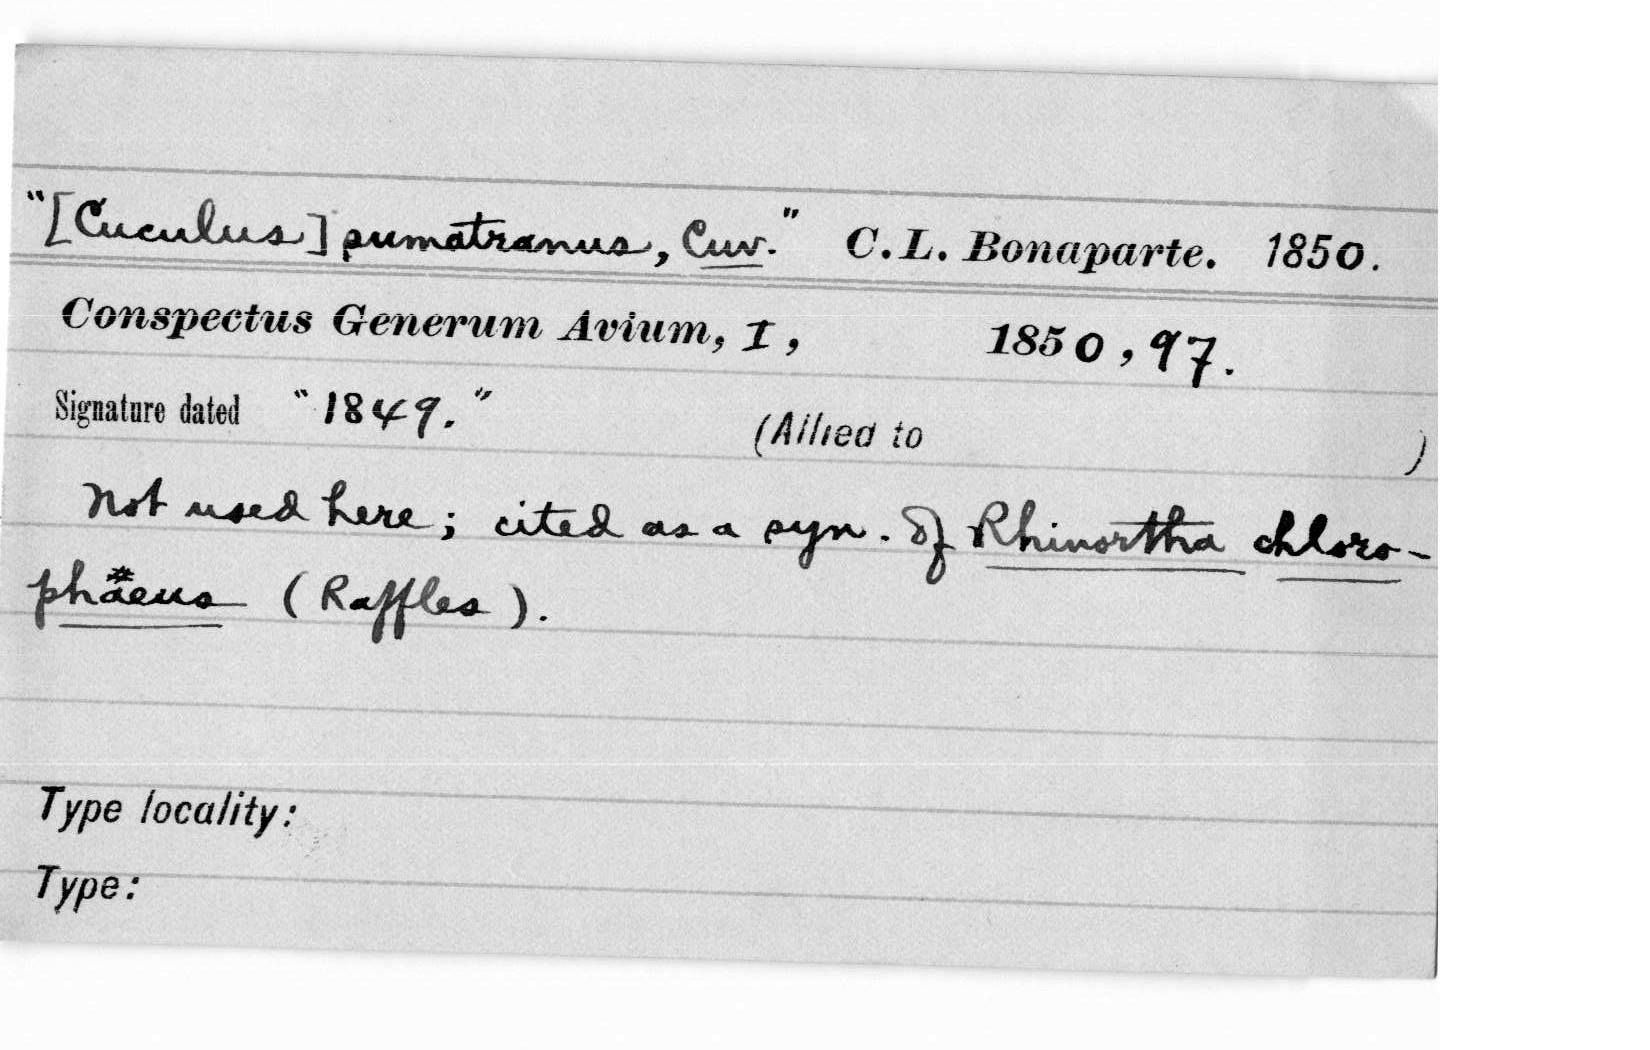 "[Cuculus] sumatranus, Cuv." C.L. Bonaparte. 1850.
Conspectus Generum Avium, I, 1850, 97.
Signature dated "1849." (Allied to )
Not used here; cited as a syn. of Rhinortha chloro-
phaeus (Raffles).
Type locality:
Type: